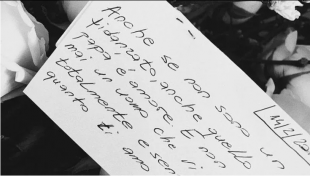 14/2/20
Anche se non sono un
fidanzato, anche quello
papà, è amore. E non
mai un uomo che vi
totalmente e sen
quanto ti amo